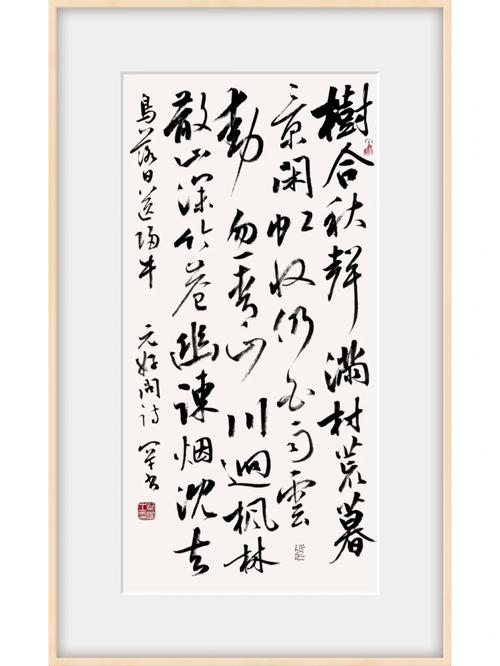 樹合秋聲滿村荒暮
景閑虹收仍白雨雲
動忽青山川迥楓林
散山深竹巷幽疎烟沈去
鳥落日送歸牛 元好問詩